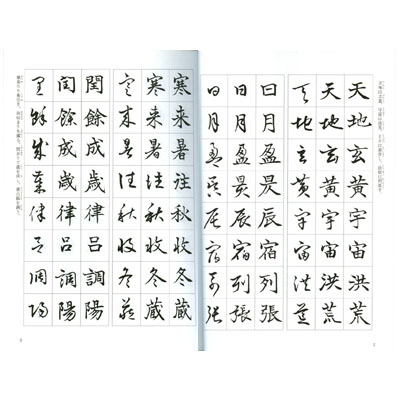 天地玄黄宇宙洪荒
天地玄黄宇宙洪荒
天地玄黄宇宙洪荒
日月盈昃辰宿列張
日月盈昃辰宿列張
日月盈昃辰宿列張
寒来暑往秋收冬蔵
寒来暑往秋收冬蔵
寒来暑往秋收冬蔵
閏餘成歳律呂調陽
閏餘成歳律呂調陽
閏餘成歳律呂調陽